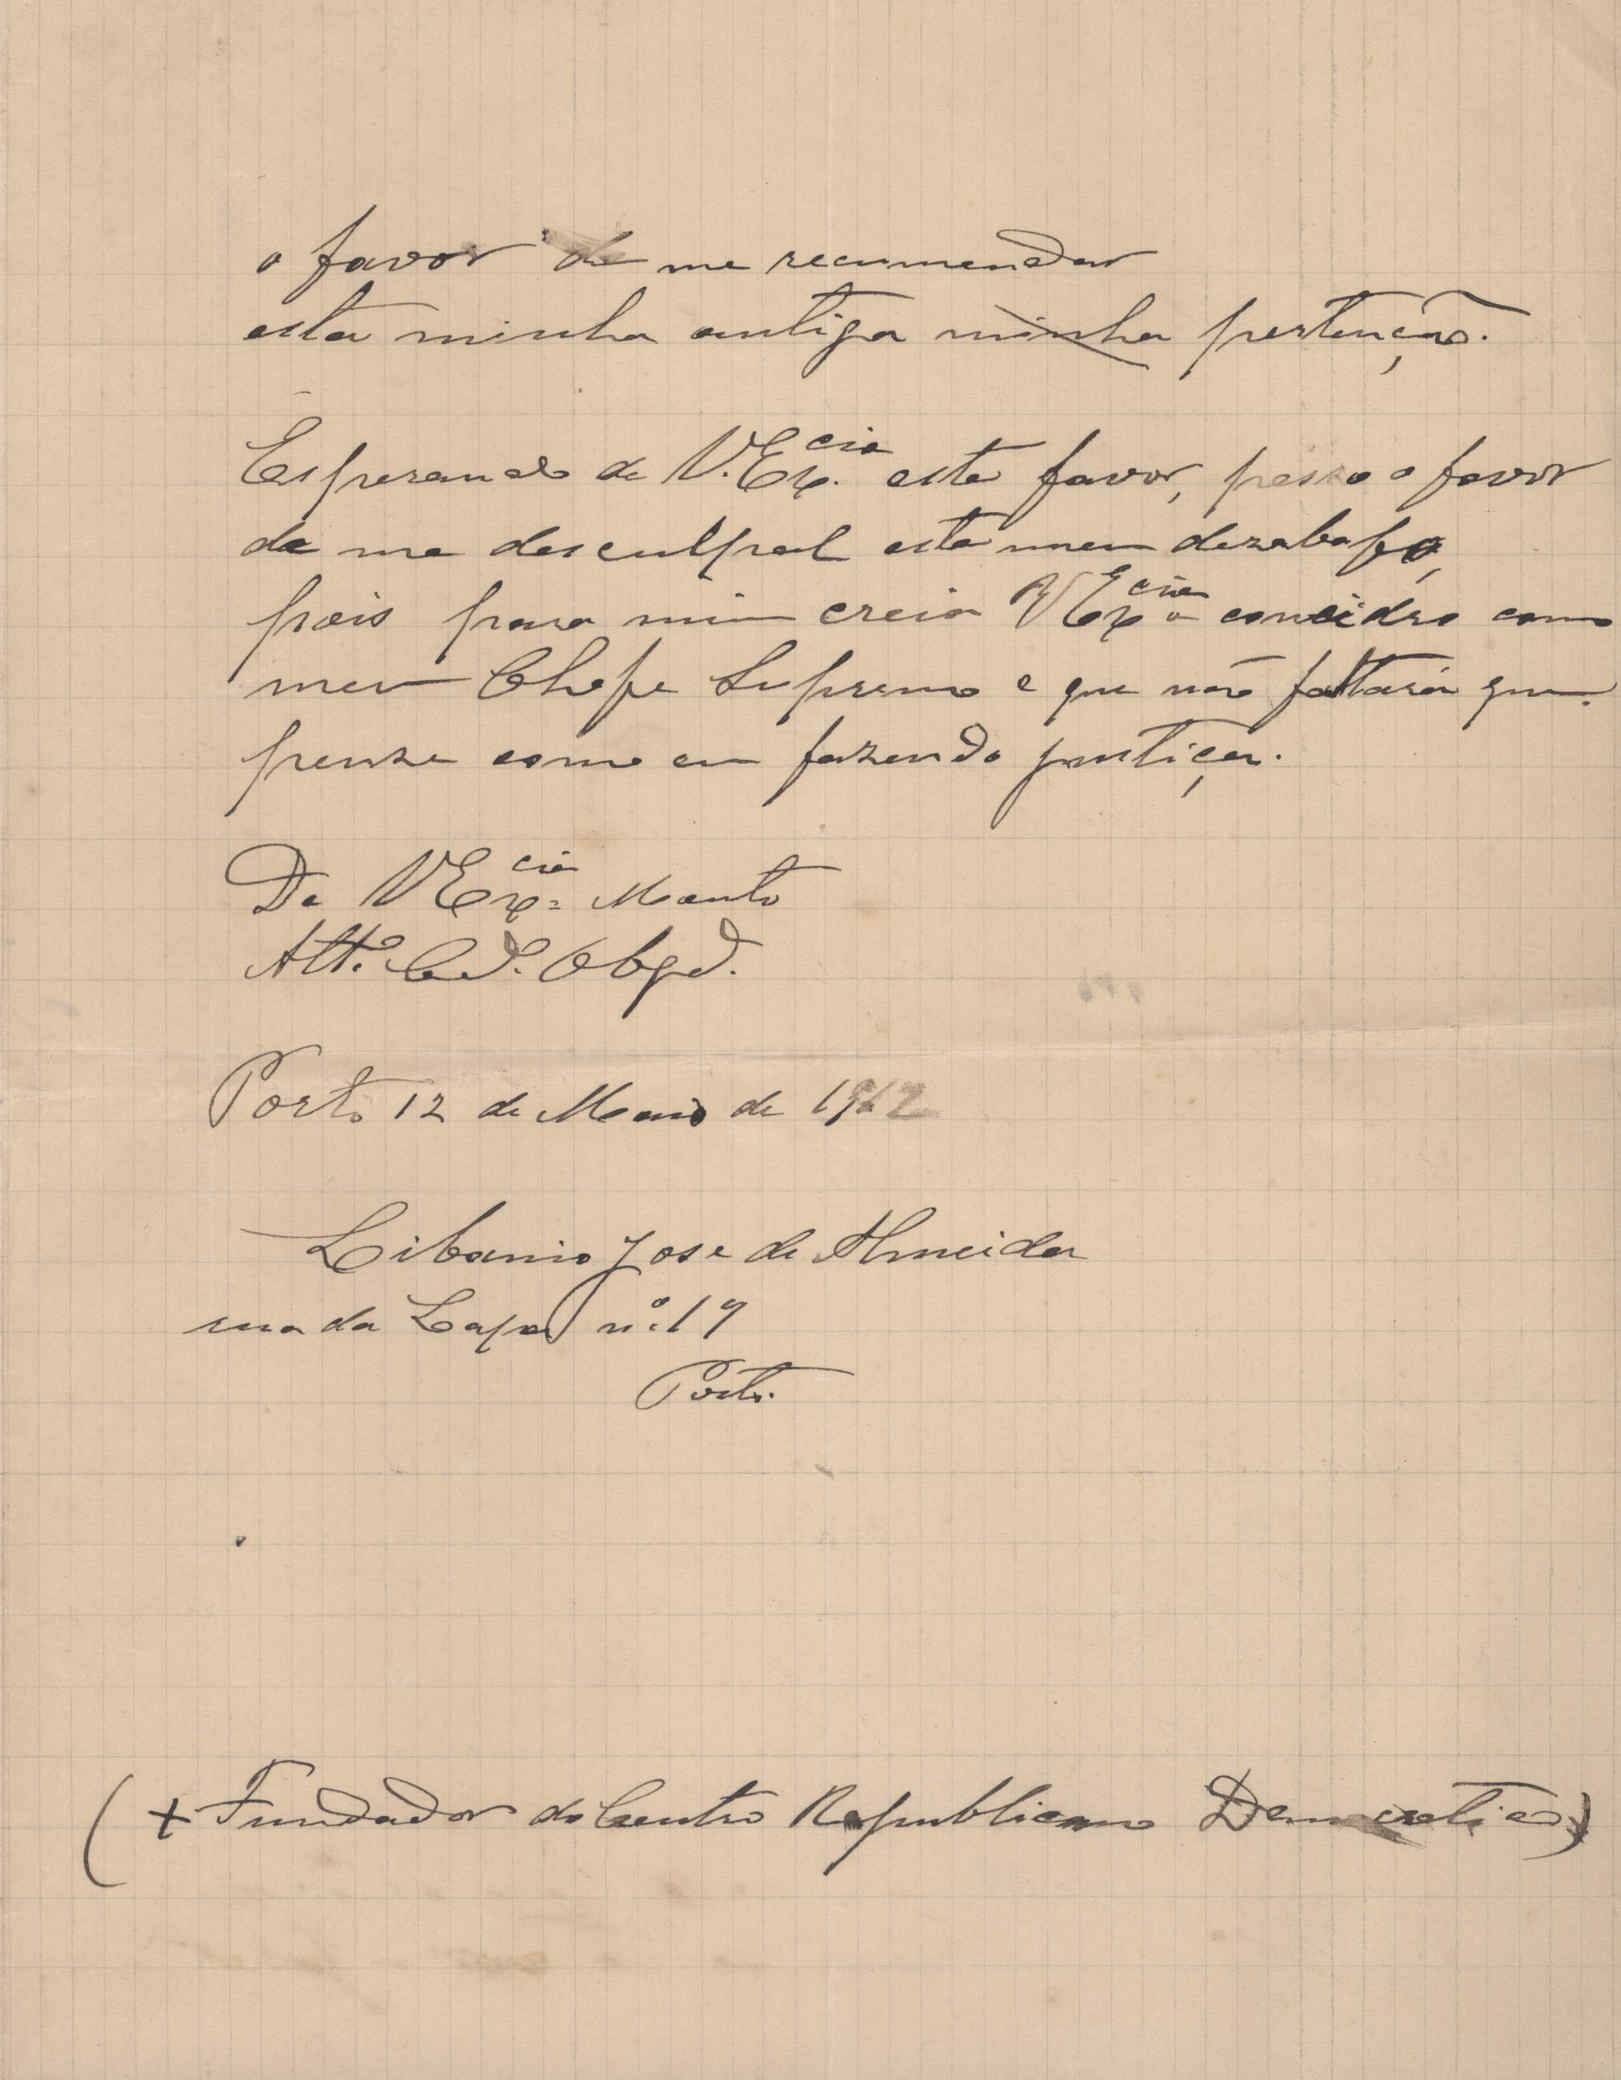 o favor de me recumendar
esta minha antiga minha pertenção.
Esperando de V. Exª.cia este favor, pesso o favor
de me desculpal este meu dezabafo,
pois para mim creia V Exª.cia o concidro como
meu Chefe Supremo e que não faltará que
pense como eu fazendo justiça.
De V Exª.cia Muito
Attº. Cdº. Obgdº.
Porto 12 de Maio de 1912
Libanio Jose de Almeida
rua da Lapa nº. 19
Porto.
(+ Fundador do Centro Republicano Democratico)